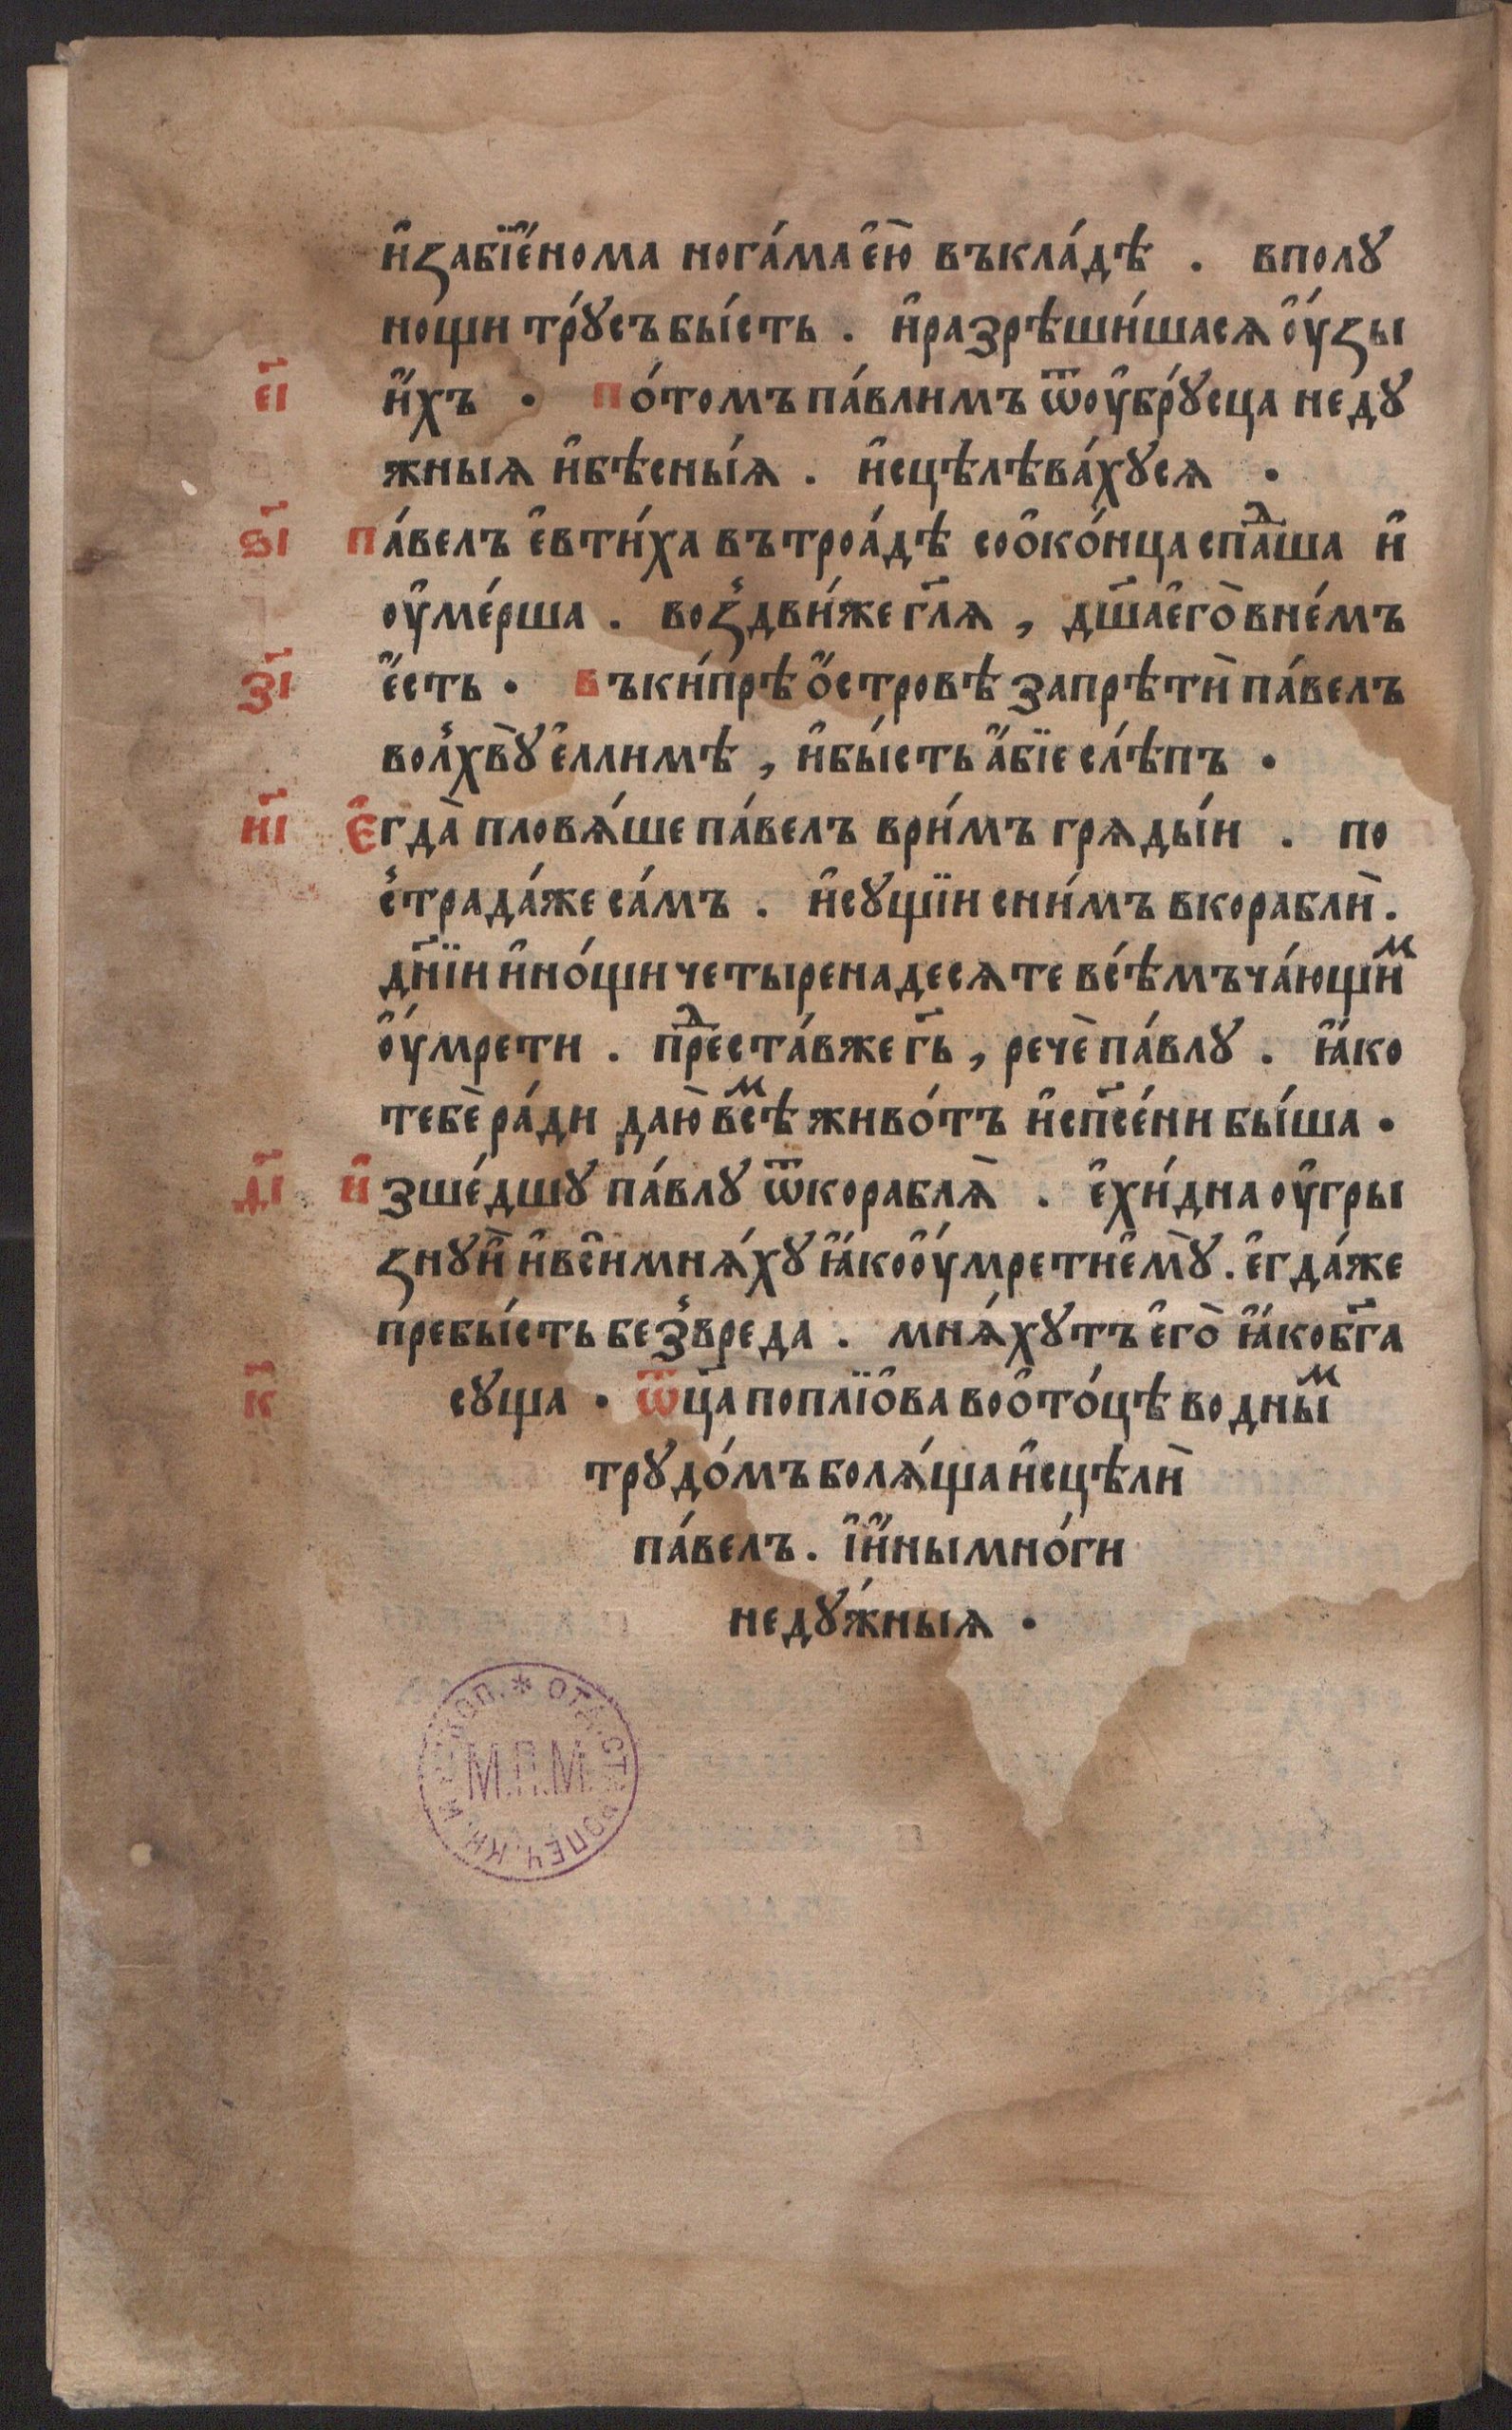 и҆ꙁабїе́нома нога́ма є҆ю̀ въкла́дѣ . вполꙋ
нощи трꙋ́съ бы́сть . и҆разрѣши́шася о҆у́ꙁы
є҃і и҆́хъ . по́томъ па́влимъ ѿоу҆брꙋ́сца недꙋ
жныя и҆бѣсны́я . и҆сцѣлѣва́хꙋся .
ѕ҃і па́велъ є҆вти́ха въ троа́дѣ соѻ҆ко́нца спа́дша и҆
оу҆ме́рша . воꙁдви́же гл҃я , дш҃а є҆го̀ вне́мъ
з҃і є҆́сть . въки́прѣ ѻ҆́стровѣ запрѣтѝ па́велъ
волхвꙋ̀ є҆лимѣ , и҆бы́сть а҆́бїе слѣ́пъ .
и҃і Є҆гда̀ пловя́ше па́велъ ври́мъ гряды́и . по
страда́же са́мъ . и҆сꙋщїи сни́мъ вкораблѝ .
дн҃їи и҆но́щи четыренадесяте всѣ́мъ ча́ющим
о҆у́мрети . пред̾ста́вже гь҃ , речѐ па́влꙋ . ꙗ҆́ко
тебѐ ра́ди даю̀ всѣм живо́тъ и҆сп҃се́ни бы́ша .
д҃і и҆зше́дшꙋ па́влꙋ ѿкорабля̀ . є҆хи́дна оу҆гры
ꙁнꙋ и҆̀ и҆вси̂ мня́хꙋ ꙗ҆́ко о҆у́мрети є҆мꙋ̀ . є҆гда́же
пребы́сть безвреда . мня́хꙋтъ є҆го̀ ꙗ҆́ко бг҃а
к҃ сꙋща . ѿц҃а поплїѻ҆ва воѻ҆то́цѣ водным
трꙋдо́мъ боля́ща и҆сцѣлѝ
па́велъ . і҆и҆́ны мно́ги
недꙋ́жныя .
М.П.М.